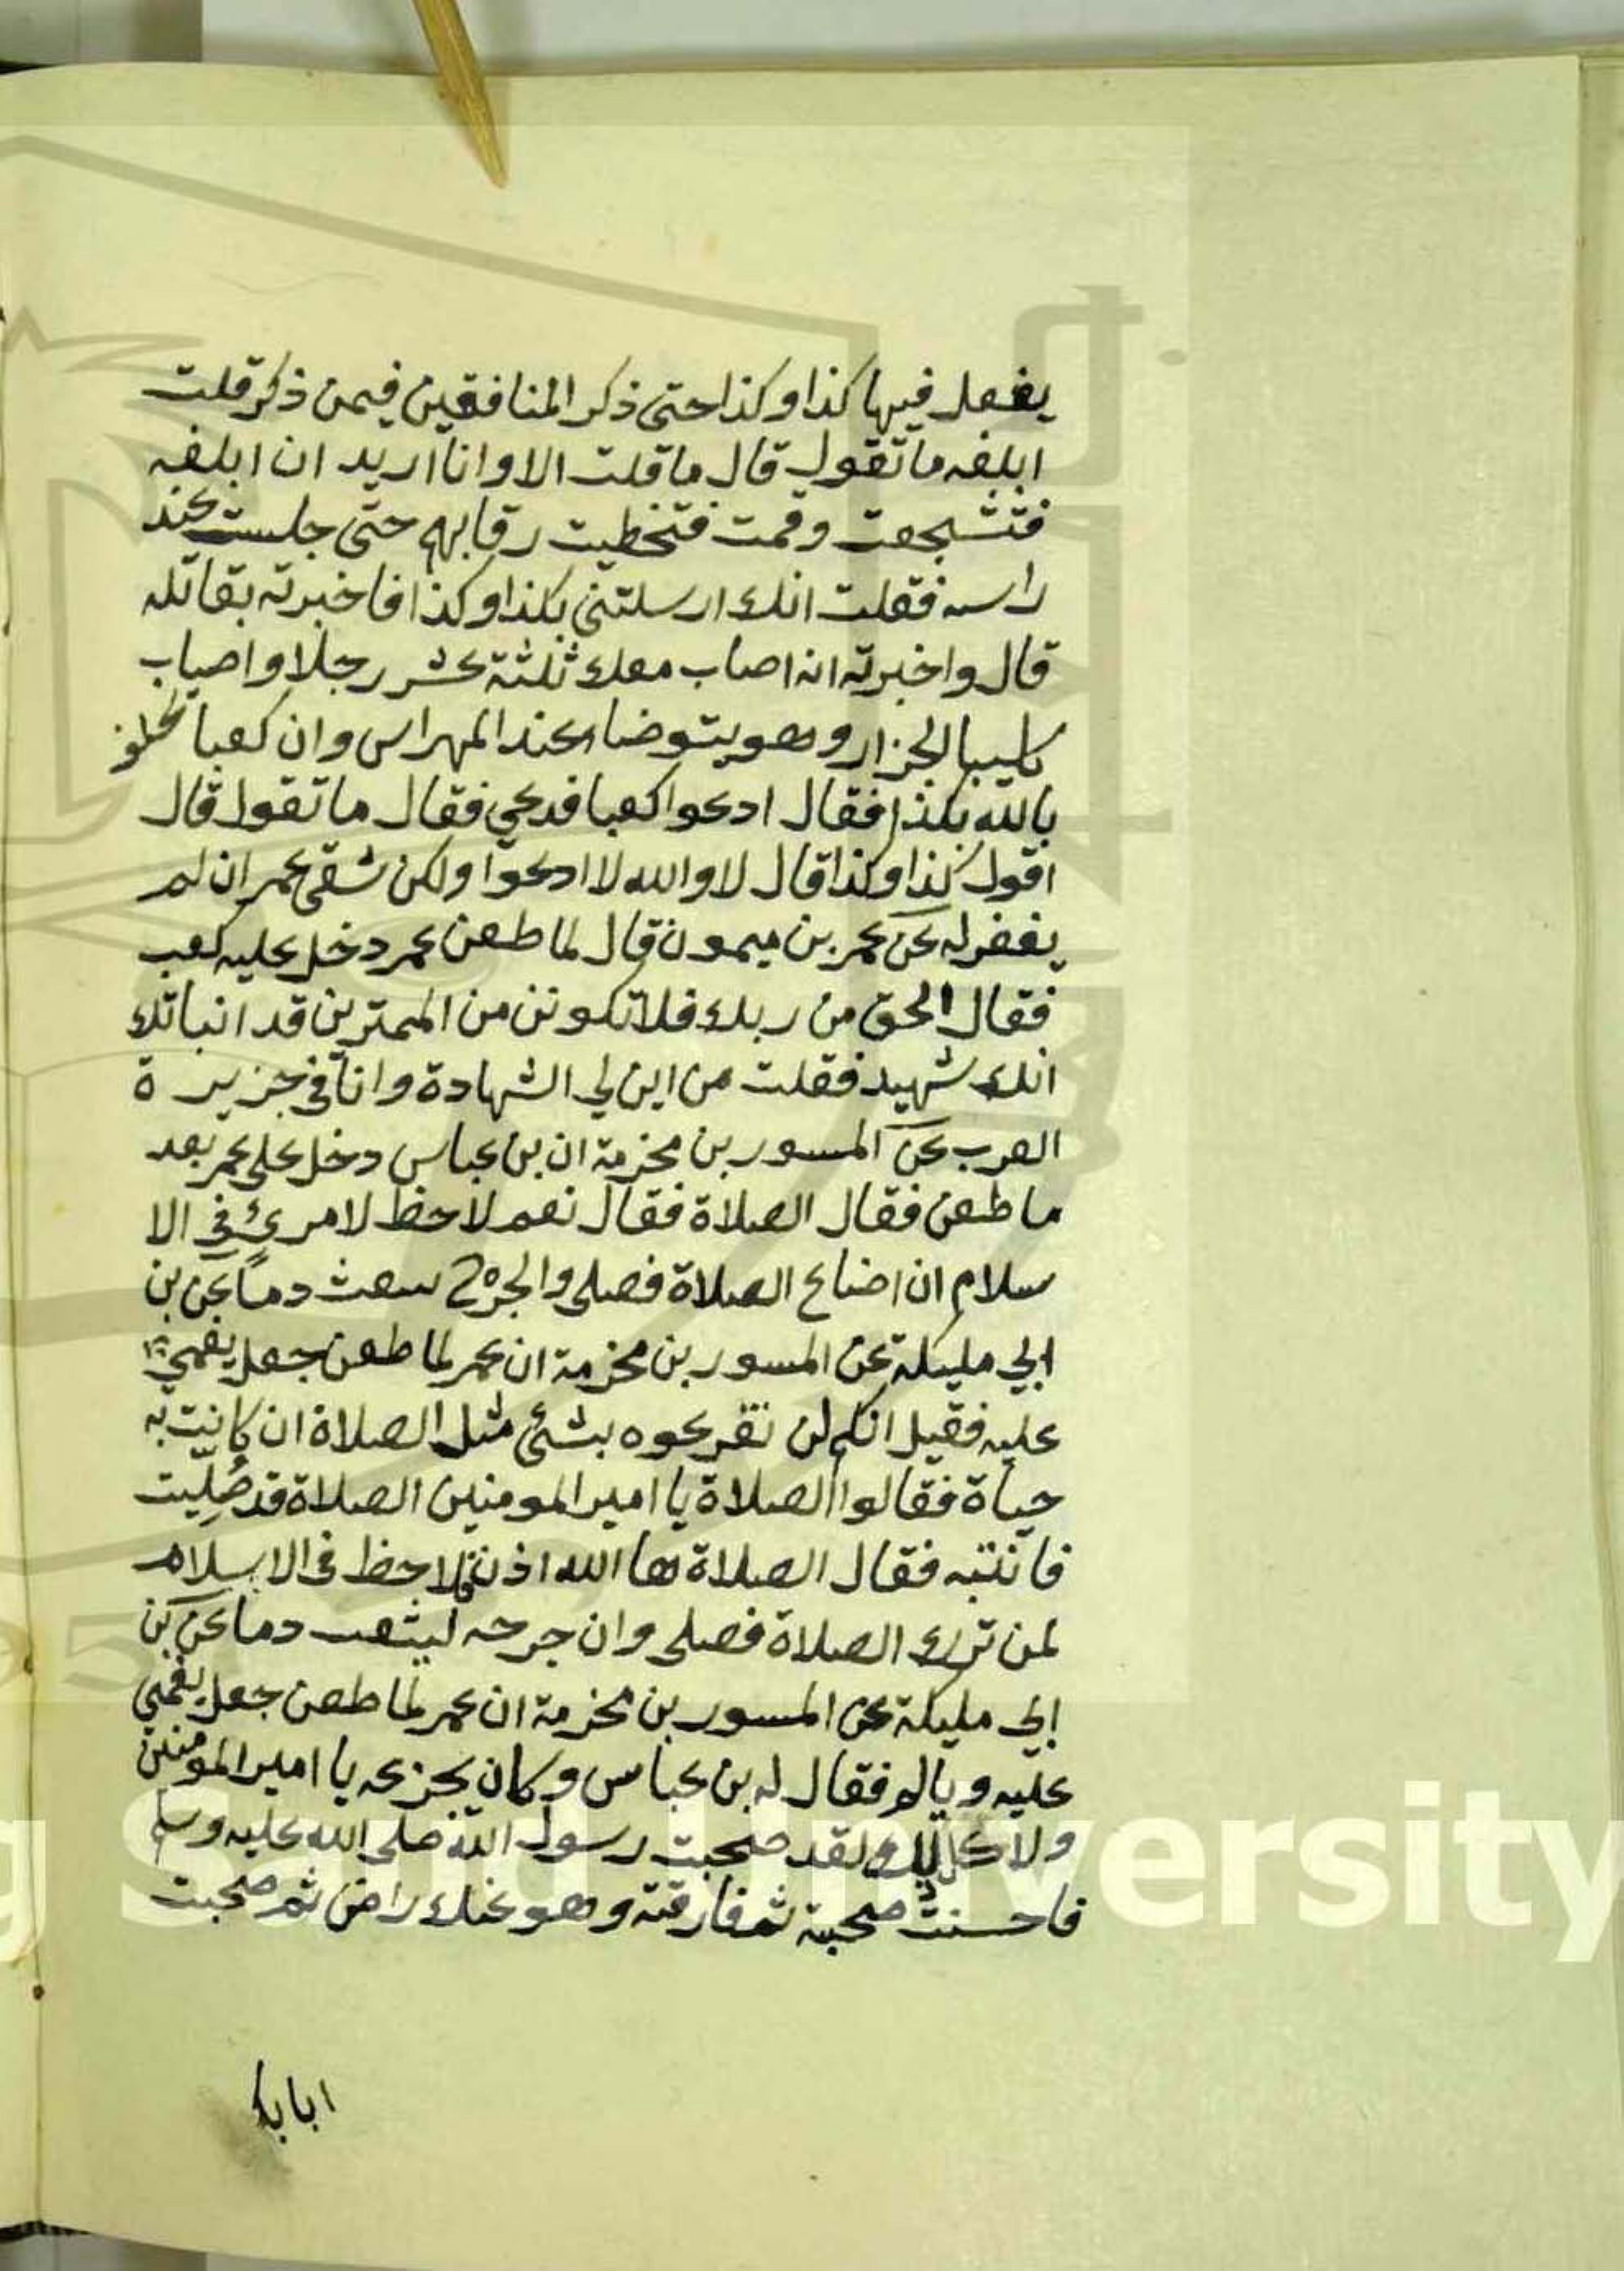 يفعل فيها كذا وكذا حتى ذكر المنافقين فيمن ذكر قلت
ابلغه ما تقول قال ما قلت الا وانا اريد ان ابلغه
فتشجعت وقمت فتخطيت رقابهم حتى جلست عند
راسه فقلت انك ارسلتني بكذا وكذا فاخبرته بقاتله
قال واخبرته انه اصاب معك ثلثة عشر رجلا واصاب
كليبا الجزار وهو يتوضاء عند المهراس وان كعبا يحلف
بالله بكذا فقال ادعوا كعبا فدعي فقال ما تقول قال
اقول كذا وكذا قال لا والله لا ادعوا ولكن شقى عمر ان لم
يغفر له عن عمر بن ميمون قال لما طعن عمر دخل عليه كعب
فقال الحق من ربك فلا تكونن من الممترين قد انباتك
انك شهيد فقلت من اين لي الشهادة وانا في جزيرة
العرب عن المسور بن مخرمة ان بن عباس دخل على عمر بعد
ما طعن فقال الصلاة فقال نعم لاحظ لامرئ في الا
سلام ان اضاع الصلاة فصلى والجرح سعث دمًا عن بن
ابي مليكة عن المسور بن مخرمة ان عمر لما طعن جعل يغمي
عليه فقيل انكم لن تفزعوه بشئ مثل الصلاة ان كانت به
حياة فقالوا الصلاة يا امير المومنين الصلاة قد صُلِّيت
فانتبه فقال الصلاة ها الله اذن فلا حظ فى الاسلام
لمن ترك الصلاة فصلى وان جرحه ليثعب دما عن بن
ابي مليكة عن المسور بن مخرمة ان عمر لما طعن جعل يغمي
عليه ويالم فقال له بن عباس وكان يجزعه يا امير المومنين
ولا كل ذلك ولقد صحبت رسول الله صلى الله عليه وسلم
فاحسنت صحبته ثم فارقته وهو عنك راض ثم صحبت
ابابكر
King Saud University